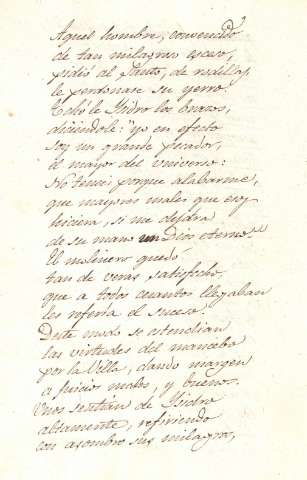 Aquel hombre, convencido
de tan milagroso exceso,
pidió al Santo, de rodillas,
le perdonase su yerro.
Echóle Ysidro los brazos,
diciéndole: "yo en efecto
soy un grande pecador,
el mayor del Universo:
No teneis porque alabarme,
que mayores males que esos
hiciera, si me dejara
de su mano un Dios eterno."
El molinero quedó
tan de veras satisfecho,
que a todos cuantos llegaban
les referia el suceso.
Deste modo se estendian
las virtudes del mancebo
por la Villa, dando margen
a juicios malos, y buenos.
Unos sentian de Ysidro
altamente, refiriendo
con asombro sus milagros,